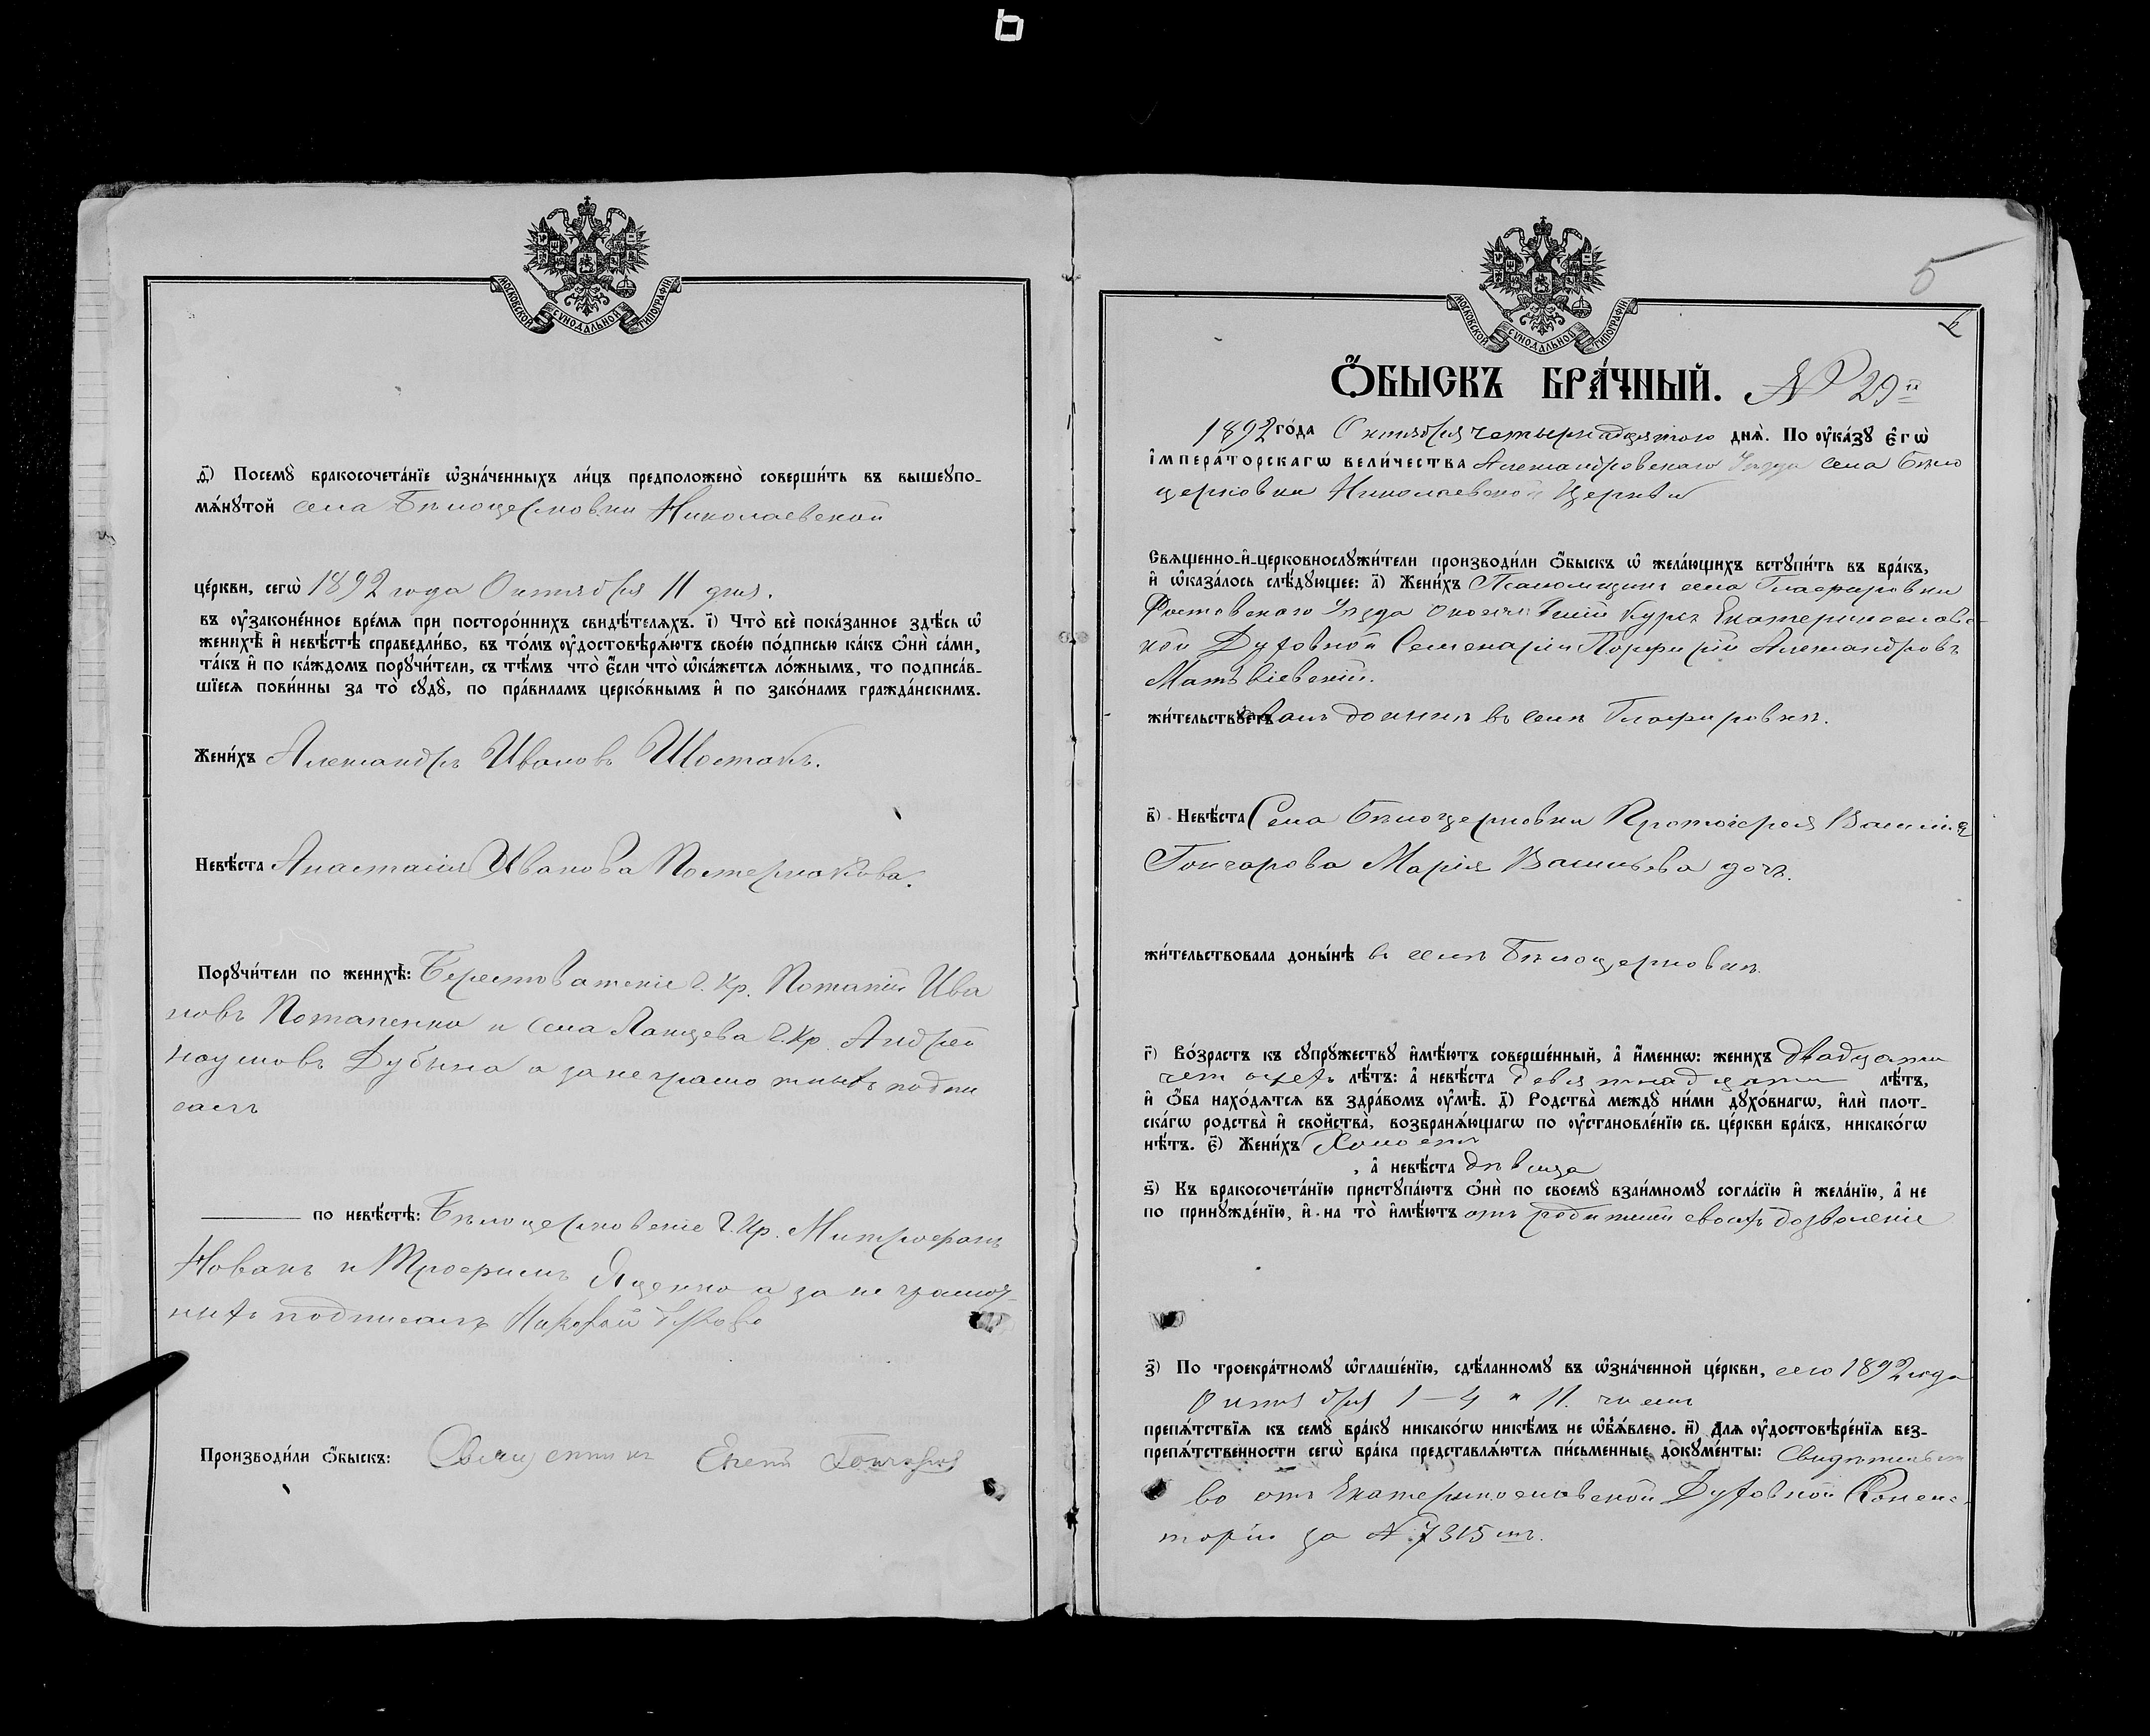 МОСКОВСКОЙ СУНОДАЛЬНОЙ ТИПОГРАФІИ
д҃) Посемꙋ̀ бракосочета́нїе ѡ҆зна́ченныхъ ли́цъ предположено̀ соверши́ть въ вышеꙋпо-
мѧ́нꙋтой села Бѣлоцерковки Николаевской
це́ркви, сегѡ̀ 1892 года Октября 11 дня.
въ ᲂу҆законе́нное вре́мѧ при посторо́ннихъ свидѣ́телѧхъ. і҃) Что̀ всѐ пока́занное здѣ́сь ѡ҆
женихѣ̀ и҆ невѣ́стѣ справедли́во, въ то́мъ ᲂу҆достовѣрѧ́ютъ свое́ю по́дписью ка́къ ѻ҆нѝ са́ми,
та́къ и҆ по ка́ждомъ порꙋчи́тели, съ тѣ́мъ что̀ є҆́сли что̀ ѡ҆ка́жетсѧ ло́жнымъ, то подписа́в-
шїесѧ пови́нны за то̀ сꙋдꙋ̀, по пра́виламъ церко́внымъ и҆ по зако́намъ гражда́нскимъ.
Жени́хъ Александръ Ивановъ Шостакъ.
Невѣ́ста Анастасія Иванова Постернакова.
Порꙋчи́тели по женихѣ̀: Берестоватскіе г. кр. Потапій Ива
новъ Потапенко и села Ланцева г. кр. Андрей
Наумовъ Дубына а за неграмотныхъ подпи
салъ
по невѣ́стѣ: Бѣлоцерковскіе г. кр. Митрофанъ
Новакъ и Трофимъ Яценко а за неграмот-
ныхъ подписалъ
Производи́ли ѻ҆́быскъ: Священникъ Гончаровъ
5
МОСКОВСКОЙ СУНОДАЛЬНОЙ ТИПОГРАФІИ
Ѻ҆́БЫСКЪ БРА́ЧНЫЙ. № 29й
1892 го́да Октября четырнадцатого днѧ̀. По ᲂу҆ка́зꙋ є҆гѡ̀
і҆мпера́торскагѡ вели́чества Александровскаго Уѣзда села Бѣло
церковки Николаевской Церкви
Свѧще́нно-и҆-церковнослꙋжи́тели производи́ли ѻ҆́быскъ ѡ҆ жела́ющихъ встꙋпи́ть въ бра́къ,
и҆ ѡ҆каза́лось слѣ́дꙋющее: а҃) Жени́хъ Псаломщикъ села Глафировки
Ростовскаго Уѣзда окончившій курсъ Екатеринославс-
кой Духовной Семенаріи Порфирій Александровъ
Матвіевскій.
жи́тельствꙋетъ валъ донынѣ въ селѣ Глафировкѣ.
в҃) Невѣ́ста Села Бѣлоцерковки Протоіерея Василія
Гончарова Марія Васильева дочь.
жи́тельствовала доны́нѣ въ селѣ Бѣлоцерковкѣ.
г҃) Во́зрастъ къ сꙋпрꙋ́жествꙋ и҆мѣ́ютъ соверше́нный, а҆ и҆́меннѡ: жени́хъ двадцати
четырехъ лѣ́тъ: а҆ невѣ́ста девятнадцати лѣ́тъ,
и҆ ѻ҆́ба нахо́дѧтсѧ въ здра́вомъ ᲂу҆мѣ̀. д҃) Родства̀ междꙋ̀ ни́ми дꙋхо́внагѡ, и҆лѝ плот-
ска́гѡ родства̀ и҆ свойства̀, возбранѧ́ющагѡ по ᲂу҆становле́нїю св. це́ркви бра́къ, никако́гѡ
нѣ́тъ. є҃) Жени́хъ Холостъ
, а҆ невѣ́ста дѣвица
ѕ҃) Къ бракосочета́нїю пристꙋпа́ютъ ѻ҆нѝ по своемꙋ̀ взаи́мномꙋ согла́сїю и҆ жела́нїю, а҆ не
по принꙋжде́нїю, и҆ на то̀ и҆мѣ́ютъ отъ родителей своихъ дозволеніе
з҃) По троекра́тномꙋ ѡ҆глаше́нїю, сдѣ́ланномꙋ въ ѡ҆зна́ченной це́ркви, сего 1892 года
Октября 1 – 4 и 11. чиселъ
препѧ́тствїѧ къ семꙋ̀ бра́кꙋ никако́гѡ никѣ́мъ не ѡ҆б̾ѧ́влено. и҃) Длѧ ᲂу҆достовѣре́нїѧ без-
препѧ́тственности сегѡ̀ бра́ка представлѧ́ютсѧ пи́сьменные докꙋме́нты: Свидѣтельст
во отъ Екатеринославской Духовной Консис-
торіи за № 7315 мъ.